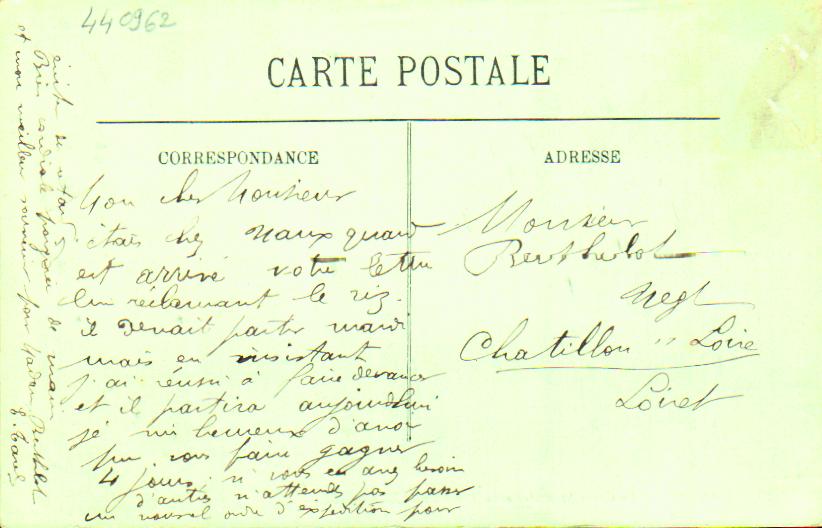 440962
CARTE POSTALE
CORRESPONDANCE
Mon cher Monsieur
étais chez Naux quand
est arrivé votre lettre
lui réclamant le riz.
il devait partir mardi
mais en insistant
j'ai réussi à faire devancer
et il partira aujourdhui
je suis heureux d'avoir
pu vous faire gagner
4 jours, si vous en avez besoin
d'autres n'attendez pas passer
un nouvel ordre d'expédition pour
de retard
Bien cordiale poignée de main
et mon meilleur souvenir pour Madame Berthelot
ADRESSE
Monsieur
Berthelot
Negt
Chatillon "" Loire
Loiret